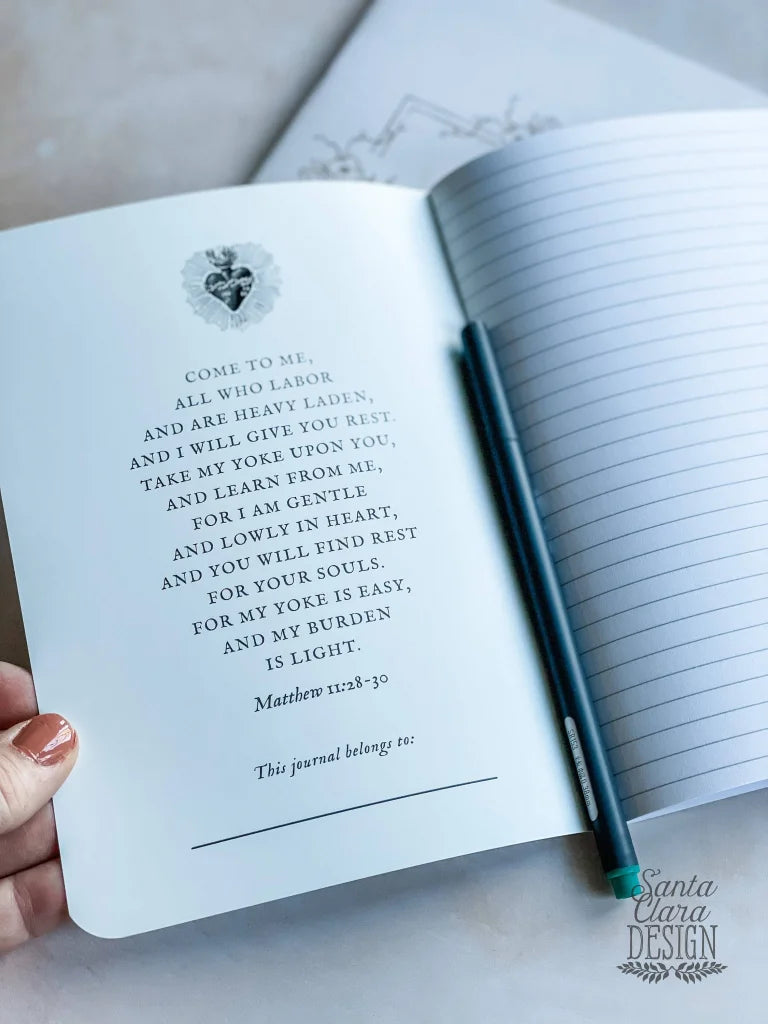 COME TO ME,
ALL WHO LABOR
AND ARE HEAVY LADEN,
AND I WILL GIVE YOU REST.
TAKE MY YOKE UPON YOU,
AND LEARN FROM ME,
FOR I AM GENTLE
AND LOWLY IN HEART,
AND YOU WILL FIND REST
FOR YOUR SOULS.
FOR MY YOKE IS EASY,
AND MY BURDEN
IS LIGHT.
Matthew 11:28-30
This journal belongs to:
Santa
Clara
DESIGN